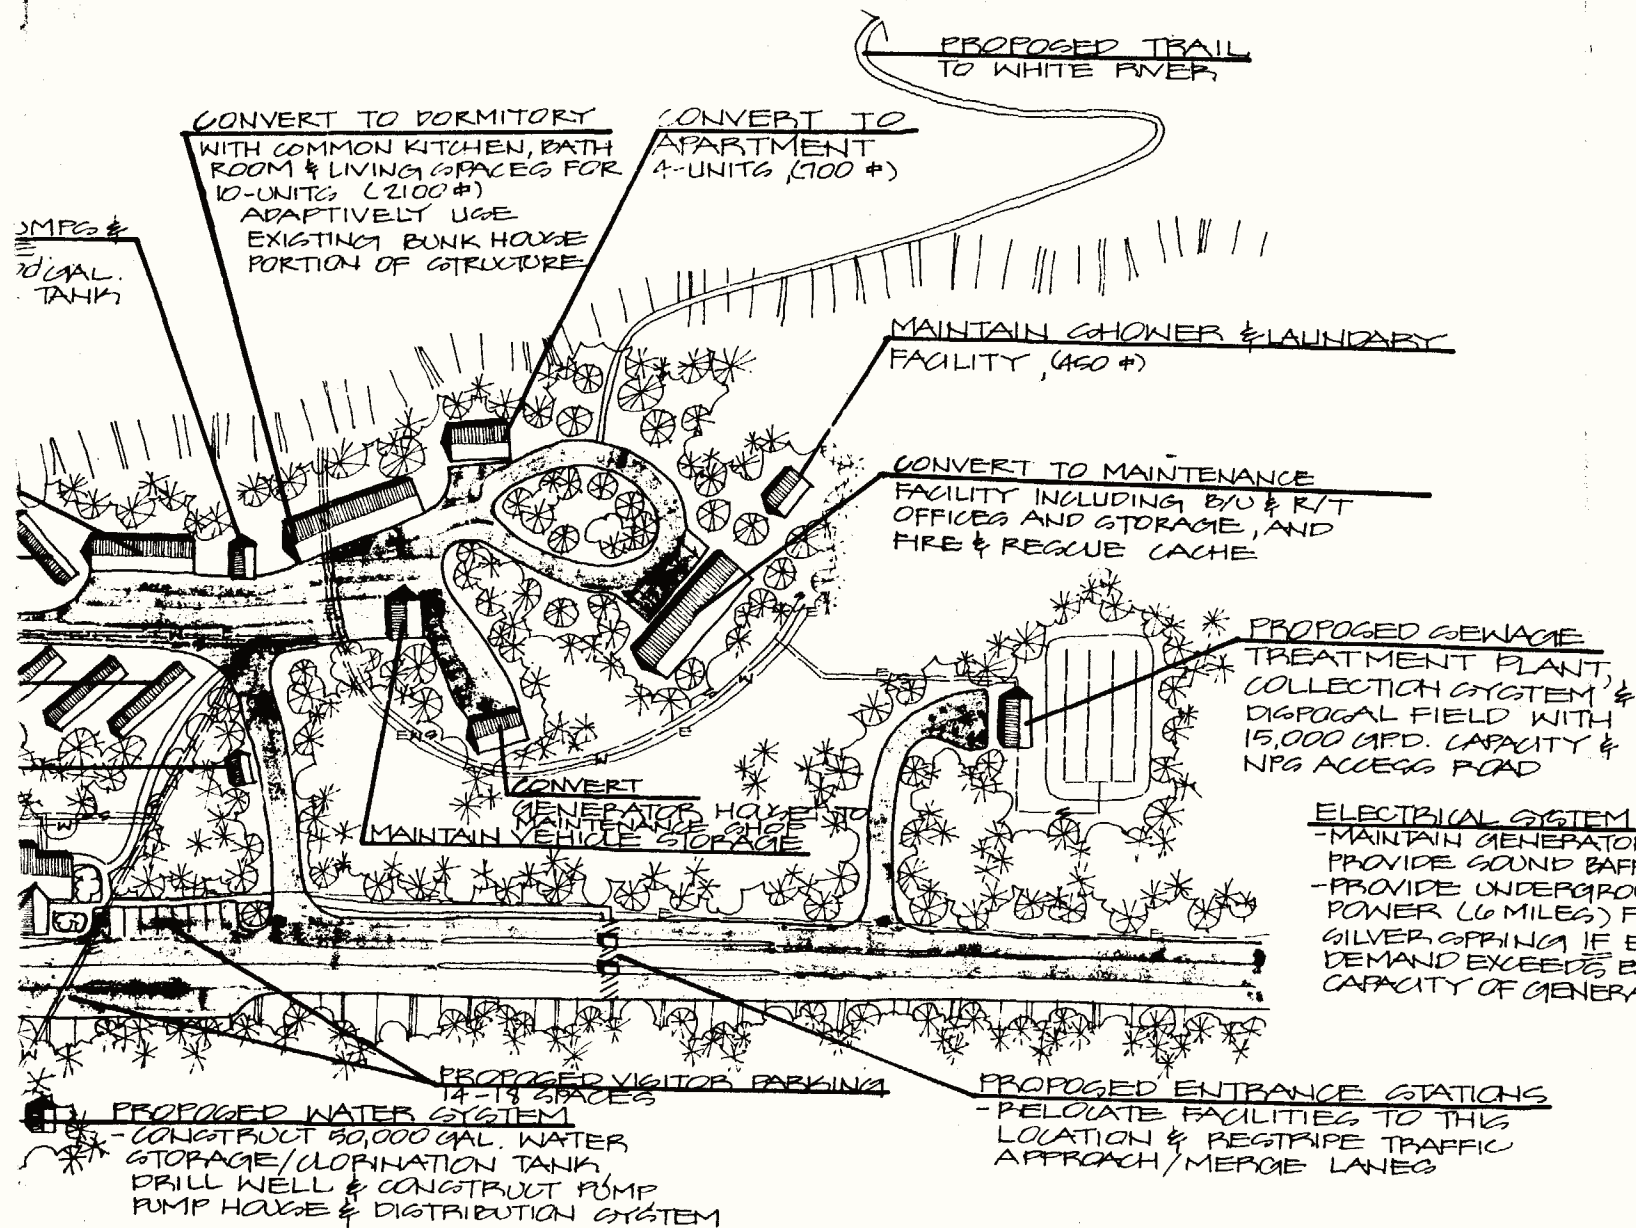 PROPOSED TRAIL
TO WHITE RIVER
CONVERT TO DORMITORY
WITH COMMON KITCHEN, BATH
ROOM & LIVING SPACES FOR
10-UNITS (2100 ⌗)
ADAPTIVELY USE
EXISTING BUNK HOUSE
PORTION OF STRUCTURE
CONVERT TO
APARTMENT
4-UNITS, (700 ⌗)
UMPS &
GAL.
TANK
MAINTAIN SHOWER & LAUNDARY
FACILITY, (450 ⌗)
CONVERT TO MAINTENANCE
FACILITY INCLUDING B/U & R/T
OFFICES AND STORAGE, AND
FIRE & RESCUE CACHE
PROPOSED SEWAGE
TREATMENT PLANT,
COLLECTION SYSTEM &
DISPOSAL FIELD WITH
15,000 G.P.D. CAPACITY &
NPS ACCESS ROAD
CONVERT
GENERATOR HOUSE TO
MAINTENANCE SHOP
MAINTAIN VEHICLE STORAGE
ELECTRICAL SYSTEM
-MAINTAIN GENERATO
PROVIDE SOUND BAFF
-PROVIDE UNDERGROU
POWER (6 MILES) F
SILVER SPRING IF E
DEMAND EXCEEDS E
CAPACITY OF GENERA
PROPOSED VISITOR PARKING
14-18 SPACES
PROPOSED ENTRANCE STATIONS
-RELOCATE FACILITIES TO THIS
LOCATION & RESTRIPE TRAFFIC
APPROACH/MERGE LANES
PROPOSED WATER SYSTEM
-CONSTRUCT 50,000 GAL. WATER
STORAGE/CLORINATION TANK,
DRILL WELL & CONSTRUCT PUMP
PUMP HOUSE & DISTRIBUTION SYSTEM